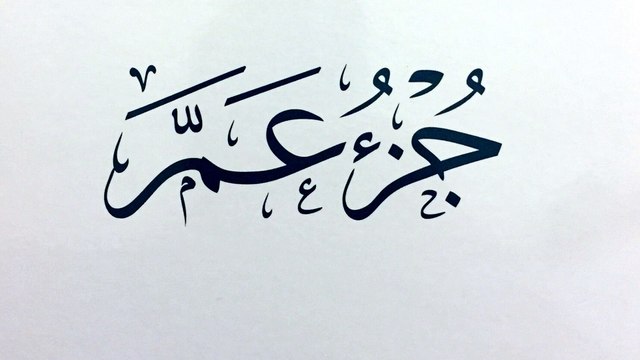 جُزْءُ عَمَّ